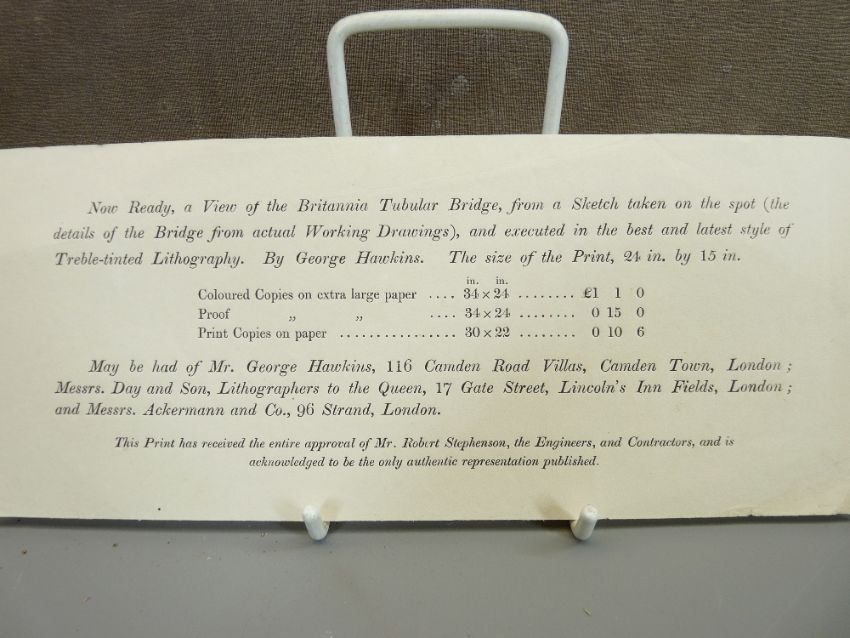 Now Ready, a View of the Britannia Tubular Bridge, from a Sketch taken on the spot (the
details of the Bridge from actual Working Drawings), and executed in the best and latest style of
Treble-tinted Lithography. By George Hawkins. The size of the Print, 24 in. by 15 in.
in. in.
Coloured Copies on extra large paper .... 34 × 24 ........ £1 1 0
Proof „ „ .... 34 × 24 ........ 0 15 0
Print Copies on paper ................ 30 × 22 ........ 0 10 6
May be had of Mr. George Hawkins, 116 Camden Road Villas, Camden Town, London;
Messrs. Day and Son, Lithographers to the Queen, 17 Gate Street, Lincoln's Inn Fields, London;
and Messrs. Ackermann and Co., 96 Strand, London.
This Print has received the entire approval of Mr. Robert Stephenson, the Engineers, and Contractors, and is
acknowledged to be the only authentic representation published.